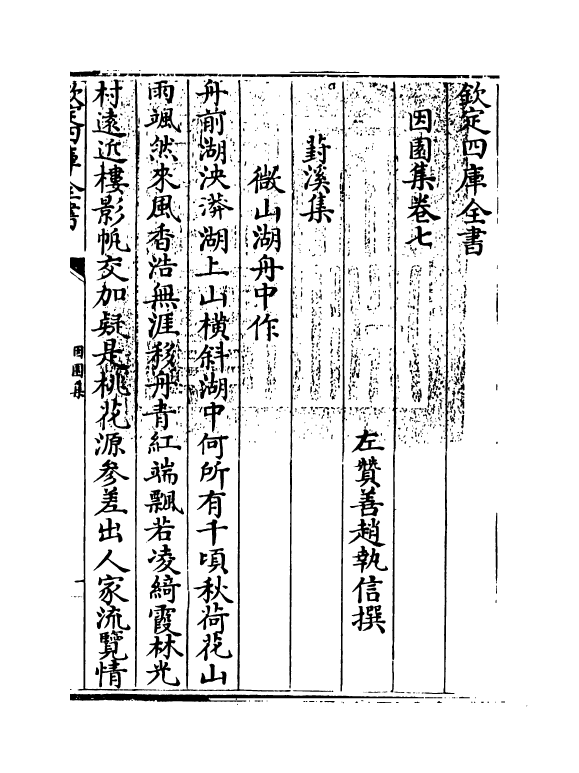 欽定四庫全書
因園集卷七
左贊善趙執信撰
葑溪集
微山湖舟中作
舟前湖泱漭湖上山橫斜湖中何所有千頃秋荷花山
雨颯然來風香浩無涯移舟青紅端飄若凌綺霞林光
村遠近樓影帆交加疑是桃花源參差出人家流覽情
欽定四庫全書
因園集